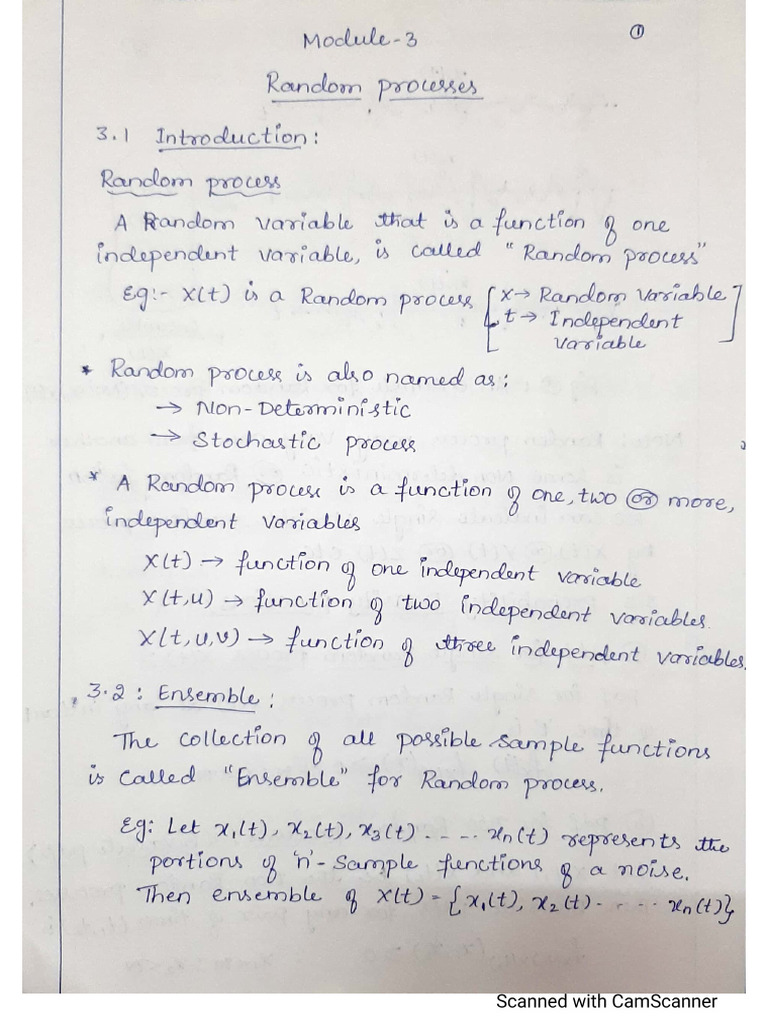 Module-3
①
Random processes
3.1 Introduction:
Random process
A Random variable that is a function of one
independent variable, is called "Random process"
Eg:- X(t) is a Random process [x→ Random Variable
t→ Independent
Variable]
* Random process is also named as:
→ Non-Deterministic
→ Stochastic process
* A Random process is a function of one, two (or) more,
independent variables
X(t) → function of one independent variable
X(t,u) → function of two independent variables.
X(t,u,v) → function of three independent variables.
3.2: Ensemble:
The collection of all possible sample functions
is called "Ensemble" for Random process.
Eg: Let x₁(t), x₂(t), x₃(t) ..... xₙ(t) represents the
portions of 'n'-Sample functions of a noise.
Then ensemble of X(t) = {x₁(t), x₂(t) ..... xₙ(t)}
Scanned with CamScanner